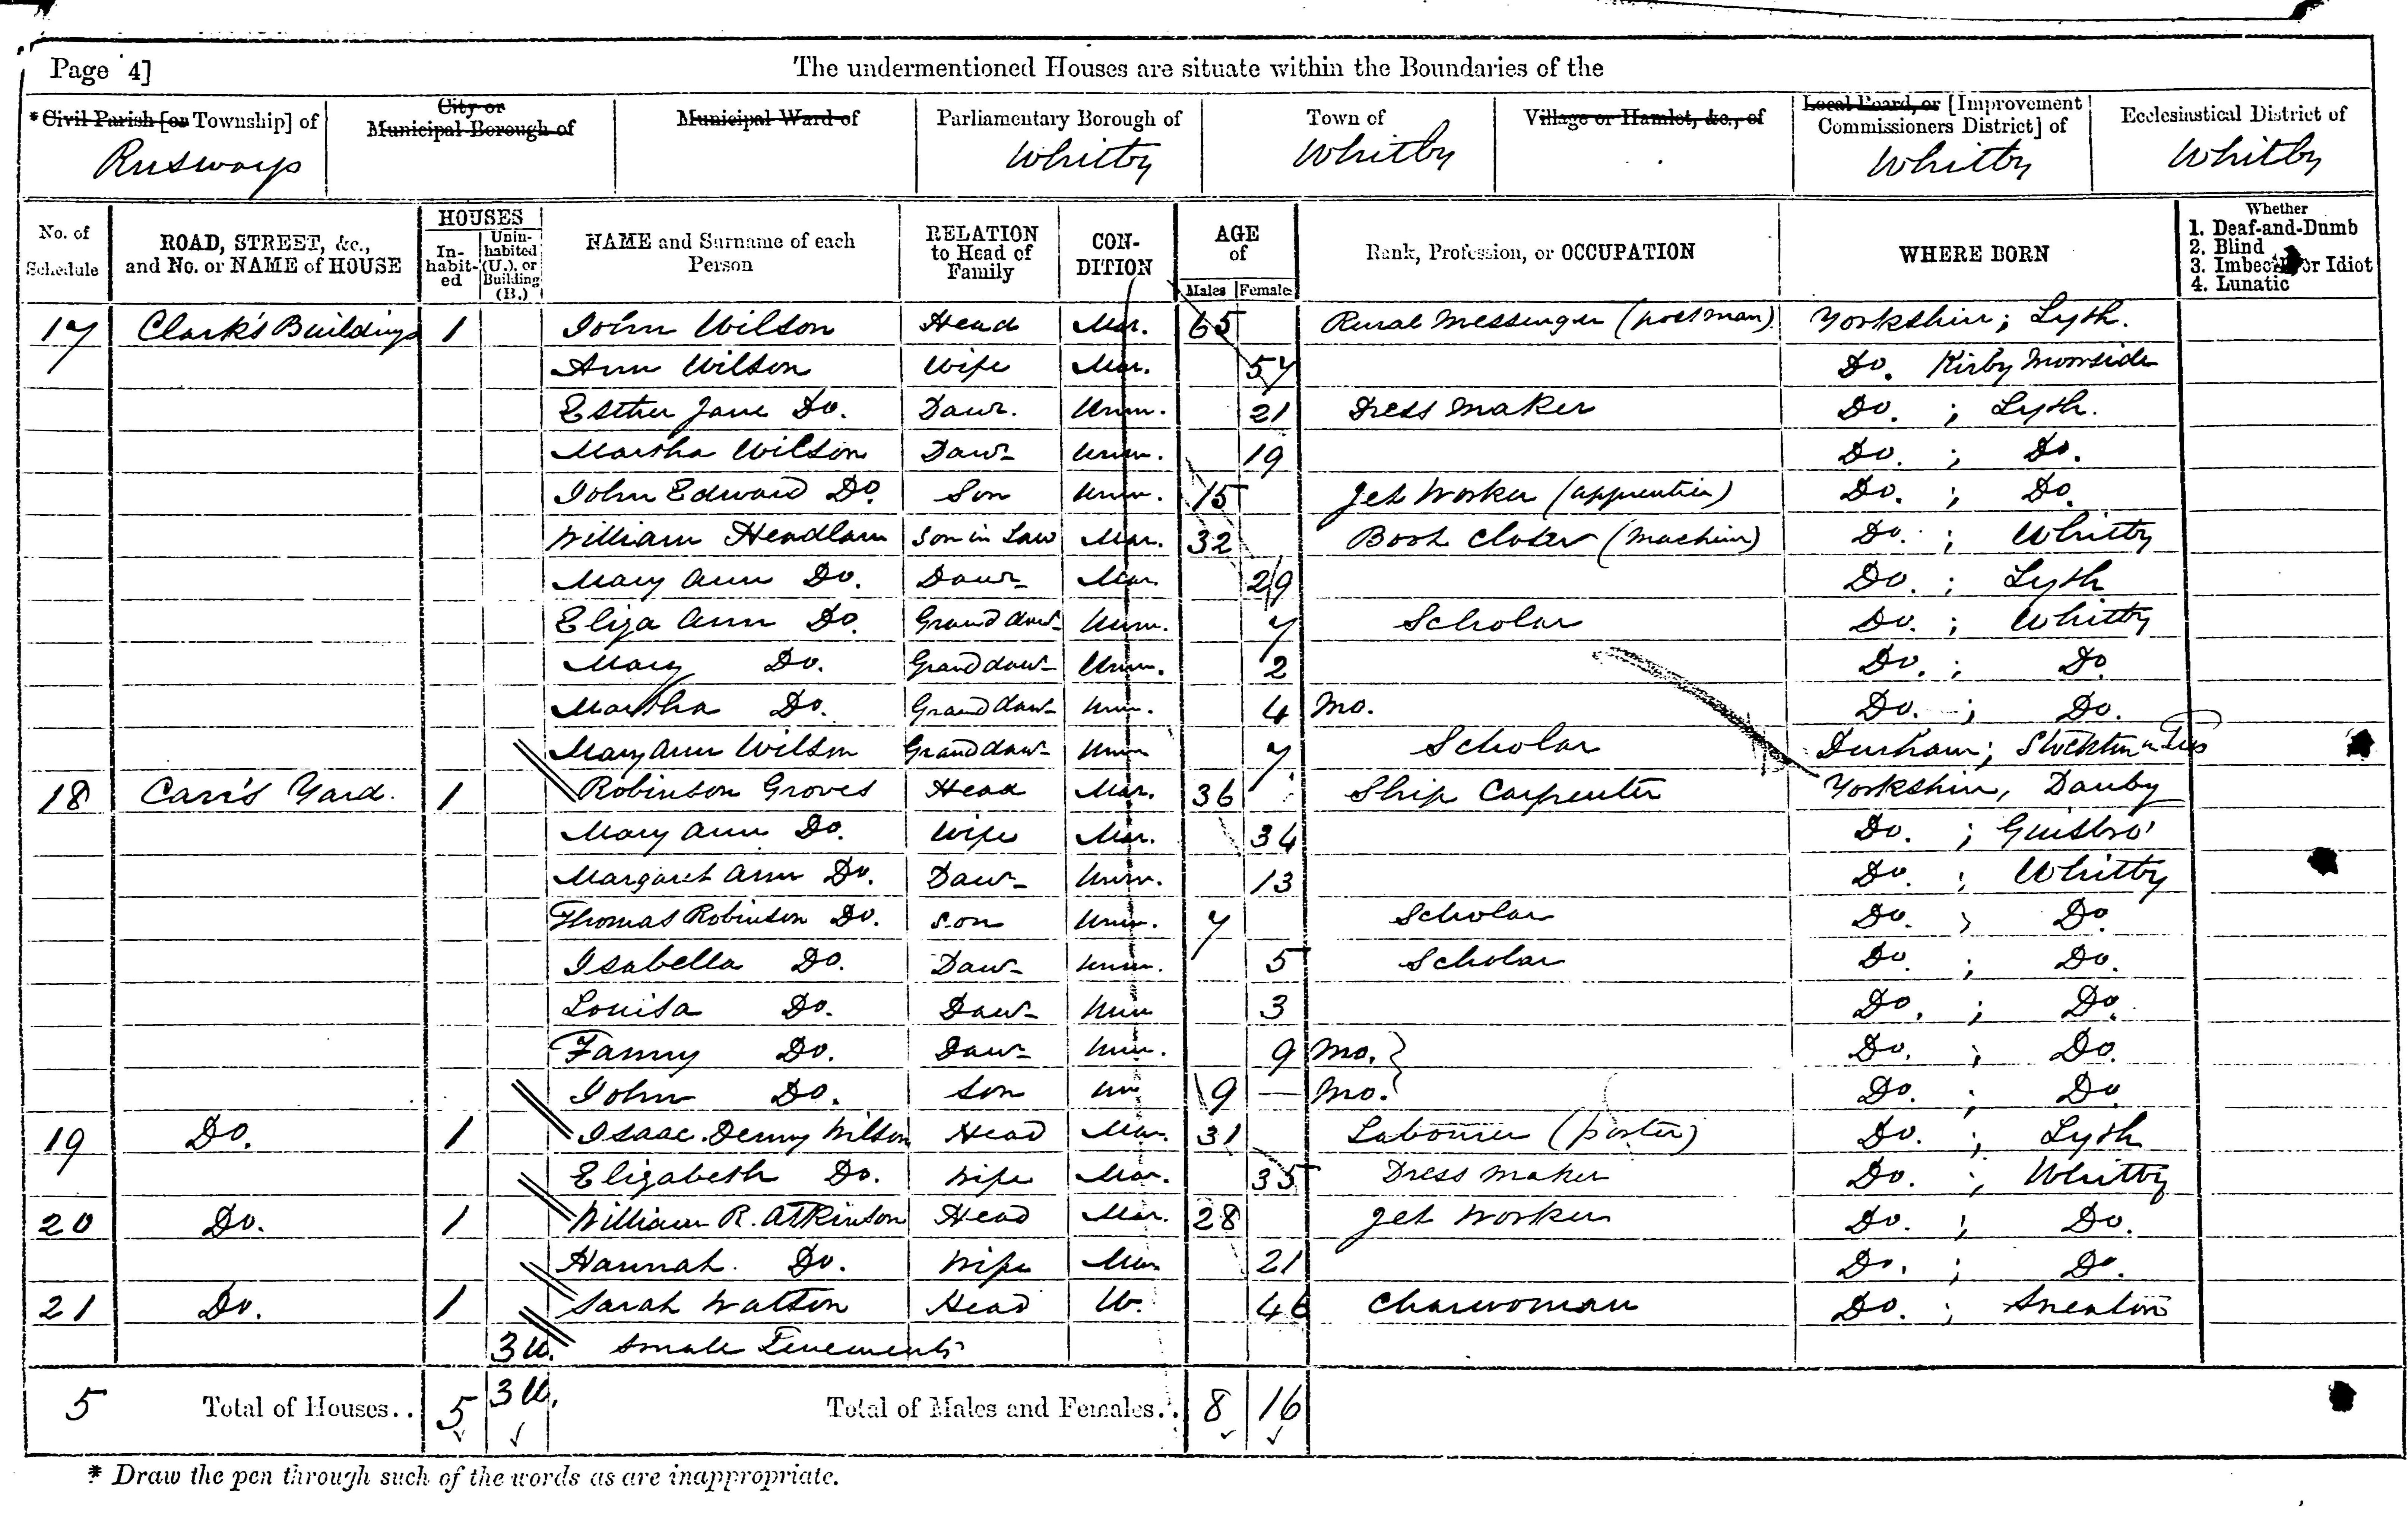 Page 4]
The undermentioned Houses are situate within the Boundaries of the
* Civil Parish [or Township] of
City or Municipal Borough of
Municipal Ward of
Parliamentary Borough of
Town of
Village or Hamlet, &c., of
Local Board, or [Improvement Commissioners District] of
Ecclesiastical District of
Ruswarp Whitby Whitby Whitby Whitby
No. of Schedule
ROAD, STREET, &c., and No. or NAME of HOUSE
HOUSES
In-habit-ed
Unin-habited (U.), or Building (B.)
NAME and Surname of each Person
RELATION to Head of Family
CON-DITION
AGE of
Males Females
Rank, Profession, or OCCUPATION
WHERE BORN
Whether
1. Deaf-and-Dumb
2. Blind
3. Imbecile or Idiot
4. Lunatic
17 Clark's Buildings 1 John Wilson Head Mar. 65 Rural Messenger (postman) Yorkshire; Lyth.
Ann Wilson Wife Mar. 57 Do. Kirby Moorside
Esther Jane Do. Daur. Unm. 21 Dress Maker Do. ; Lyth.
Martha Wilson Daur Unm. 19 Do. ; Do.
John Edward Do. Son Unm. 15 Jet Worker (apprentice) Do. ; Do.
William Headlam Son in Law Mar. 32 Boot Closer (Machine) Do. ; Whitby
Mary Ann Do. Daur Mar. 29 Do. ; Lyth
Eliza Ann Do. Grand daur Unm. 7 Scholar Do. ; Whitby
Mary Do. Grand daur Unm. 2 Do. ; Do
Martha Do. Grand daur Unm. 4 Mo. Do. ; Do.
Mary Ann Wilson Grand daur Unm 7 Scholar Durham; Stockton on Tees
18 Carr's Yard. 1 Robinson Groves Head Mar. 36 Ship Carpenter Yorkshire, Danby
Mary Ann Do. Wife Mar. 34 Do. ; Guisbro'
Margaret Ann Do. Daur Unm. 13 Do. ; Whitby
Thomas Robinson Do. Son Unm. 7 Scholar Do. ; Do
Isabella Do. Daur Unm. 5 Scholar Do. ; Do.
Louisa Do. Daur Unm 3 Do. ; Do.
Fanny Do. Daur Unm. 9 Mo. } Do. ; Do.
John Do. Son Un 9 — Mo. Do. ; Do
19 Do. 1 Isaac Denny Wilson Head Mar. 31 Labourer (porter) Do. ; Lyth
Elizabeth Do. Wife Mar. 35 Dress Maker Do. ; Whitby
20 Do. 1 William R. Atkinson Head Mar. 28 Jet Worker Do. ; Do.
Hannah Do. Wife Mar 21 Do. ; Do.
21 Do. 1 Sarah Watson Head W. 46 Charwoman Do. ; Sneaton
3 U. Small Tenements
5 Total of Houses.. 5 3 U. Total of Males and Females.. 8 16
* Draw the pen through such of the words as are inappropriate.